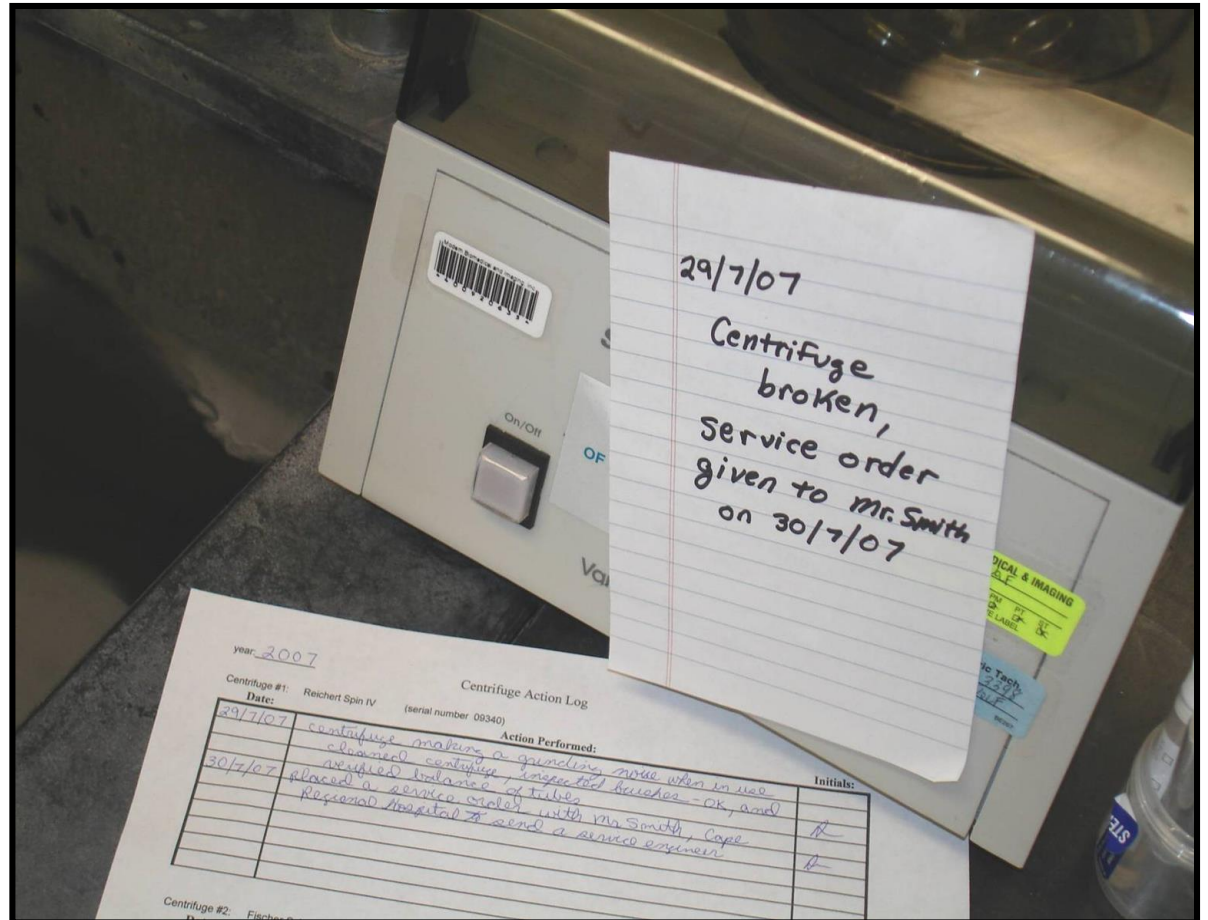 Modern Biomedical and Imaging, Inc.
On/Off
OF
Va
29/7/07
Centrifuge
broken,
service order
given to Mr. Smith
on 30/7/07
DICAL & IMAGING
PM PT ST
OK OK
E LABEL
ic Tach.
year: 2007
Centrifuge Action Log
Centrifuge #1: Reichert Spin IV (serial number 09340)
Date: Action Performed: Initials:
29/7/07 centrifuge making a grinding noise when in use
cleaned centrifuge, inspected brushes - OK, and
verified balance of tubes
30/7/07 placed a service order with Mr. Smith, Cape
Regional Hospital to send a service engineer
Centrifuge #2: Fischer
STE